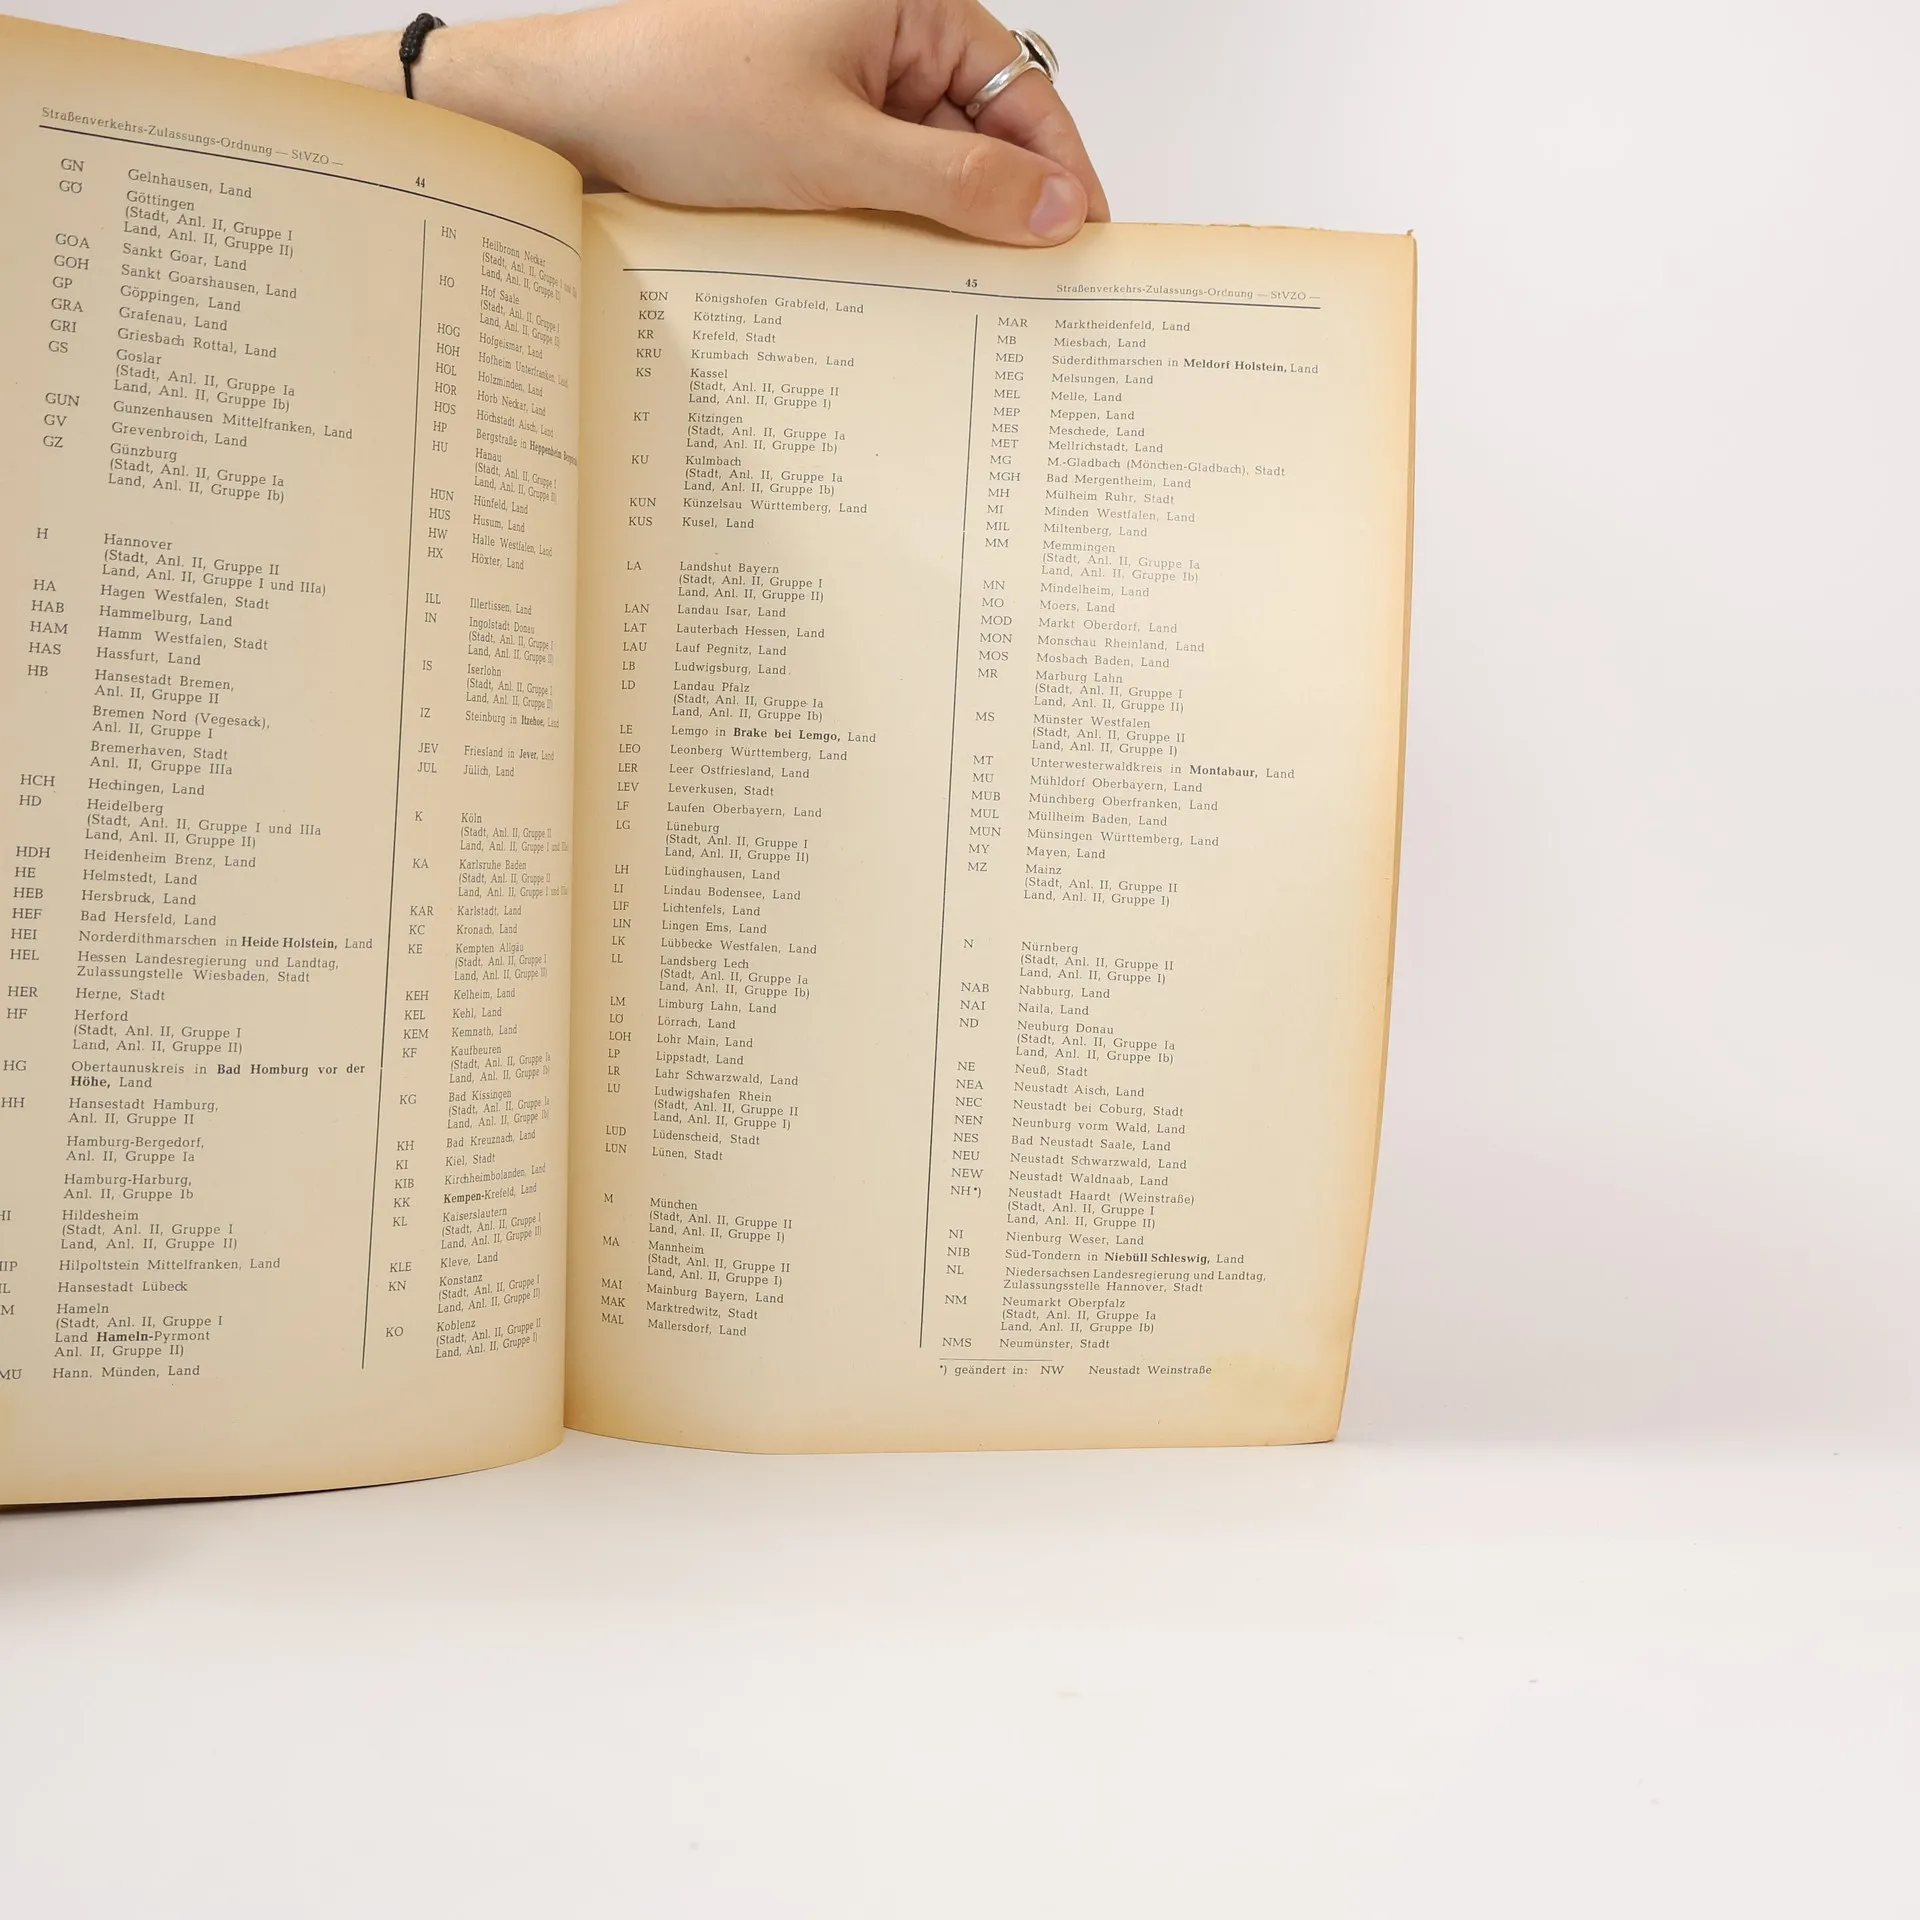 Straßenverkehrs-Zulassungs-Ordnung — StVZO —
44
GN Gelnhausen, Land
GÖ Göttingen
(Stadt, Anl. II, Gruppe I
Land, Anl. II, Gruppe II)
GOA Sankt Goar, Land
GOH Sankt Goarshausen, Land
GP Göppingen, Land
GRA Grafenau, Land
GRI Griesbach Rottal, Land
GS Goslar
(Stadt, Anl. II, Gruppe Ia
Land, Anl. II, Gruppe Ib)
GUN Gunzenhausen Mittelfranken, Land
GV Grevenbroich, Land
GZ Günzburg
(Stadt, Anl. II, Gruppe Ia
Land, Anl. II, Gruppe Ib)
H Hannover
(Stadt, Anl. II, Gruppe II
Land, Anl. II, Gruppe I und IIIa)
HA Hagen Westfalen, Stadt
HAB Hammelburg, Land
HAM Hamm Westfalen, Stadt
HAS Hassfurt, Land
HB Hansestadt Bremen,
Anl. II, Gruppe II
Bremen Nord (Vegesack),
Anl. II, Gruppe I
Bremerhaven, Stadt
Anl. II, Gruppe IIIa
HCH Hechingen, Land
HD Heidelberg
(Stadt, Anl. II, Gruppe I und IIIa
Land, Anl. II, Gruppe II)
HDH Heidenheim Brenz, Land
HE Helmstedt, Land
HEB Hersbruck, Land
HEF Bad Hersfeld, Land
HEI Norderdithmarschen in Heide Holstein, Land
HEL Hessen Landesregierung und Landtag,
Zulassungstelle Wiesbaden, Stadt
HER Herne, Stadt
HF Herford
(Stadt, Anl. II, Gruppe I
Land, Anl. II, Gruppe II)
HG Obertaunuskreis in Bad Homburg vor der
Höhe, Land
HH Hansestadt Hamburg,
Anl. II, Gruppe II
Hamburg-Bergedorf,
Anl. II, Gruppe Ia
Hamburg-Harburg,
Anl. II, Gruppe Ib
HI Hildesheim
(Stadt, Anl. II, Gruppe I
Land, Anl. II, Gruppe II)
HIP Hilpoltstein Mittelfranken, Land
HL Hansestadt Lübeck
HM Hameln
(Stadt, Anl. II, Gruppe I
Land Hameln-Pyrmont
Anl. II, Gruppe II)
HMÜ Hann. Münden, Land
HN Heilbronn Neckar
(Stadt, Anl. II, Gruppe I und
Land, Anl. II, Gruppe II)
HO Hof Saale
(Stadt, Anl. II, Gruppe I
Land, Anl. II, Gruppe II)
HOG Hofgeismar, Land
HOH Hofheim Unterfranken, Land
HOL Holzminden, Land
HOR Horb Neckar, Land
HÖS Höchstadt Aisch, Land
HP Bergstraße in Heppenheim
HU Hanau
(Stadt, Anl. II, Gruppe I
Land, Anl. II, Gruppe II)
HÜN Hünfeld, Land
HUS Husum, Land
HW Halle Westfalen, Land
HX Höxter, Land
ILL Illertissen, Land
IN Ingolstadt Donau
(Stadt, Anl. II, Gruppe I
Land, Anl. II, Gruppe II)
IS Iserlohn
(Stadt, Anl. II, Gruppe I
Land, Anl. II, Gruppe II)
IZ Steinburg in Itzehoe, Land
JEV Friesland in Jever, Land
JÜL Jülich, Land
K Köln
(Stadt, Anl. II, Gruppe II
Land, Anl. II, Gruppe I und
KA Karlsruhe Baden
(Stadt, Anl. II, Gruppe II
Land, Anl. II, Gruppe I und
KAR Karlstadt, Land
KC Kronach, Land
KE Kempten Allgäu
(Stadt, Anl. II, Gruppe I
Land, Anl. II, Gruppe II)
KEH Kelheim, Land
KEL Kehl, Land
KEM Kemnath, Land
KF Kaufbeuren
(Stadt, Anl. II, Gruppe Ia
Land, Anl. II, Gruppe Ib)
KG Bad Kissingen
(Stadt, Anl. II, Gruppe Ia
Land, Anl. II, Gruppe Ib)
KH Bad Kreuznach, Land
KI Kiel, Stadt
KIB Kirchheimbolanden, Land
KK Kempen-Krefeld, Land
KL Kaiserslautern
(Stadt, Anl. II, Gruppe I
Land, Anl. II, Gruppe II)
KLE Kleve, Land
KN Konstanz
(Stadt, Anl. II, Gruppe I
Land, Anl. II, Gruppe II)
KO Koblenz
(Stadt, Anl. II, Gruppe II
Land, Anl. II, Gruppe I)
45
Straßenverkehrs-Zulassungs-Ordnung — StVZO —
KÖN Königshofen Grabfeld, Land
KÖZ Kötzting, Land
KR Krefeld, Stadt
KRU Krumbach Schwaben, Land
KS Kassel
(Stadt, Anl. II, Gruppe II
Land, Anl. II, Gruppe I)
KT Kitzingen
(Stadt, Anl. II, Gruppe Ia
Land, Anl. II, Gruppe Ib)
KU Kulmbach
(Stadt, Anl. II, Gruppe Ia
Land, Anl. II, Gruppe Ib)
KÜN Künzelsau Württemberg, Land
KUS Kusel, Land
LA Landshut Bayern
(Stadt, Anl. II, Gruppe I
Land, Anl. II, Gruppe II)
LAN Landau Isar, Land
LAT Lauterbach Hessen, Land
LAU Lauf Pegnitz, Land
LB Ludwigsburg, Land
LD Landau Pfalz
(Stadt, Anl. II, Gruppe Ia
Land, Anl. II, Gruppe Ib)
LE Lemgo in Brake bei Lemgo, Land
LEO Leonberg Württemberg, Land
LER Leer Ostfriesland, Land
LEV Leverkusen, Stadt
LF Laufen Oberbayern, Land
LG Lüneburg
(Stadt, Anl. II, Gruppe I
Land, Anl. II, Gruppe II)
LH Lüdinghausen, Land
LI Lindau Bodensee, Land
LIF Lichtenfels, Land
LIN Lingen Ems, Land
LK Lübbecke Westfalen, Land
LL Landsberg Lech
(Stadt, Anl. II, Gruppe Ia
Land, Anl. II, Gruppe Ib)
LM Limburg Lahn, Land
LÖ Lörrach, Land
LOH Lohr Main, Land
LP Lippstadt, Land
LR Lahr Schwarzwald, Land
LU Ludwigshafen Rhein
(Stadt, Anl. II, Gruppe II
Land, Anl. II, Gruppe I)
LÜD Lüdenscheid, Stadt
LÜN Lünen, Stadt
M München
(Stadt, Anl. II, Gruppe II
Land, Anl. II, Gruppe I)
MA Mannheim
(Stadt, Anl. II, Gruppe II
Land, Anl. II, Gruppe I)
MAI Mainburg Bayern, Land
MAK Marktredwitz, Stadt
MAL Mallersdorf, Land
MAR Marktheidenfeld, Land
MB Miesbach, Land
MED Süderdithmarschen in Meldorf Holstein, Land
MEG Melsungen, Land
MEL Melle, Land
MEP Meppen, Land
MES Meschede, Land
MET Mellrichstadt, Land
MG M.-Gladbach (Mönchen-Gladbach), Stadt
MGH Bad Mergentheim, Land
MH Mülheim Ruhr, Stadt
MI Minden Westfalen, Land
MIL Miltenberg, Land
MM Memmingen
(Stadt, Anl. II, Gruppe Ia
Land, Anl. II, Gruppe Ib)
MN Mindelheim, Land
MO Moers, Land
MOD Markt Oberdorf, Land
MON Monschau Rheinland, Land
MOS Mosbach Baden, Land
MR Marburg Lahn
(Stadt, Anl. II, Gruppe I
Land, Anl. II, Gruppe II)
MS Münster Westfalen
(Stadt, Anl. II, Gruppe II
Land, Anl. II, Gruppe I)
MT Unterwesterwaldkreis in Montabaur, Land
MÜ Mühldorf Oberbayern, Land
MÜB Münchberg Oberfranken, Land
MÜL Müllheim Baden, Land
MÜN Münsingen Württemberg, Land
MY Mayen, Land
MZ Mainz
(Stadt, Anl. II, Gruppe II
Land, Anl. II, Gruppe I)
N Nürnberg
(Stadt, Anl. II, Gruppe II
Land, Anl. II, Gruppe I)
NAB Nabburg, Land
NAI Naila, Land
ND Neuburg Donau
(Stadt, Anl. II, Gruppe Ia
Land, Anl. II, Gruppe Ib)
NE Neuß, Stadt
NEA Neustadt Aisch, Land
NEC Neustadt bei Coburg, Stadt
NEN Neunburg vorm Wald, Land
NES Bad Neustadt Saale, Land
NEU Neustadt Schwarzwald, Land
NEW Neustadt Waldnaab, Land
NH*) Neustadt Haardt (Weinstraße)
(Stadt, Anl. II, Gruppe I
Land, Anl. II, Gruppe II)
NI Nienburg Weser, Land
NIB Süd-Tondern in Niebüll Schleswig, Land
NL Niedersachsen Landesregierung und Landtag,
Zulassungsstelle Hannover, Stadt
NM Neumarkt Oberpfalz
(Stadt, Anl. II, Gruppe Ia
Land, Anl. II, Gruppe Ib)
NMS Neumünster, Stadt
*) geändert in: NW Neustadt Weinstraße